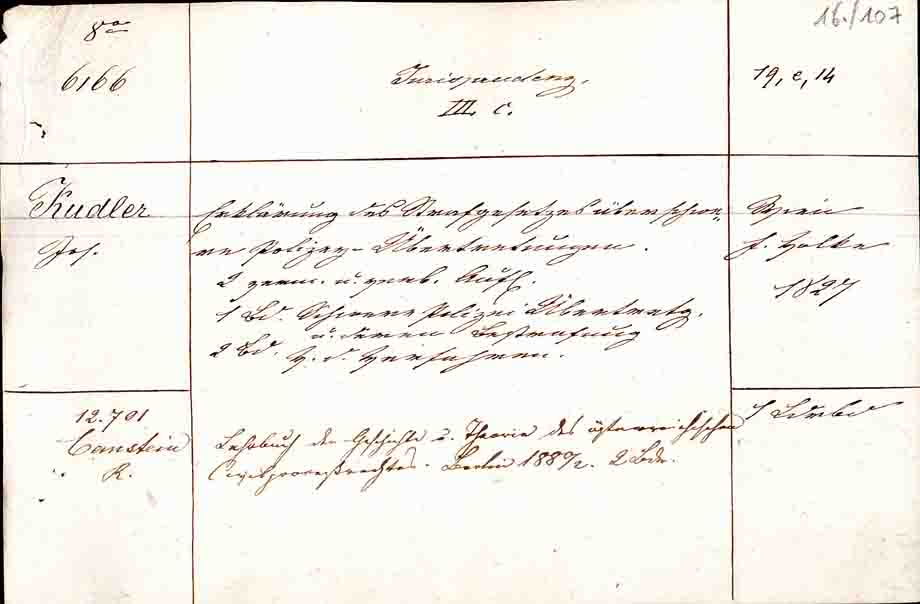 8º
6166
Jurisprudenz.
III. c.
19, e, 14
16./107
Kudler
Jos.
Erklärung des Strafgesetzes über schwe-
re Polizey-Übertretungen.
2 verm. u. verb. Aufl.
1 Bd. Schwere Polizei Übertretg.
u. deren Bestrafung
2 Bd. V. d. Verfahren.
Wien
f. Volke
1827
1 Ldrbd
12.701
Canstein
R.
Lehrbuch der Geschichte u. Theorie des österreichischen
Civilprocessrechtes. Berlin 1880/2. 2 Bde.